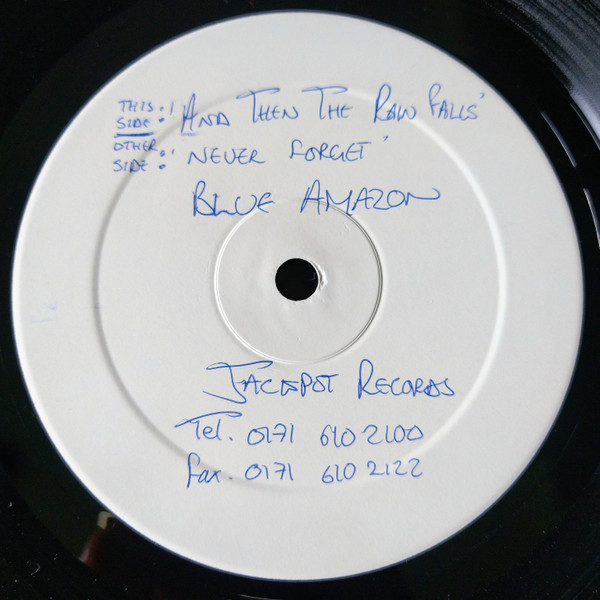 THIS SIDE: 'AND THEN THE RAIN FALLS'
OTHER SIDE: 'NEVER FORGET'
BLUE AMAZON
JACKPOT RECORDS
Tel. 0171 610 2100
fax. 0171 610 2122